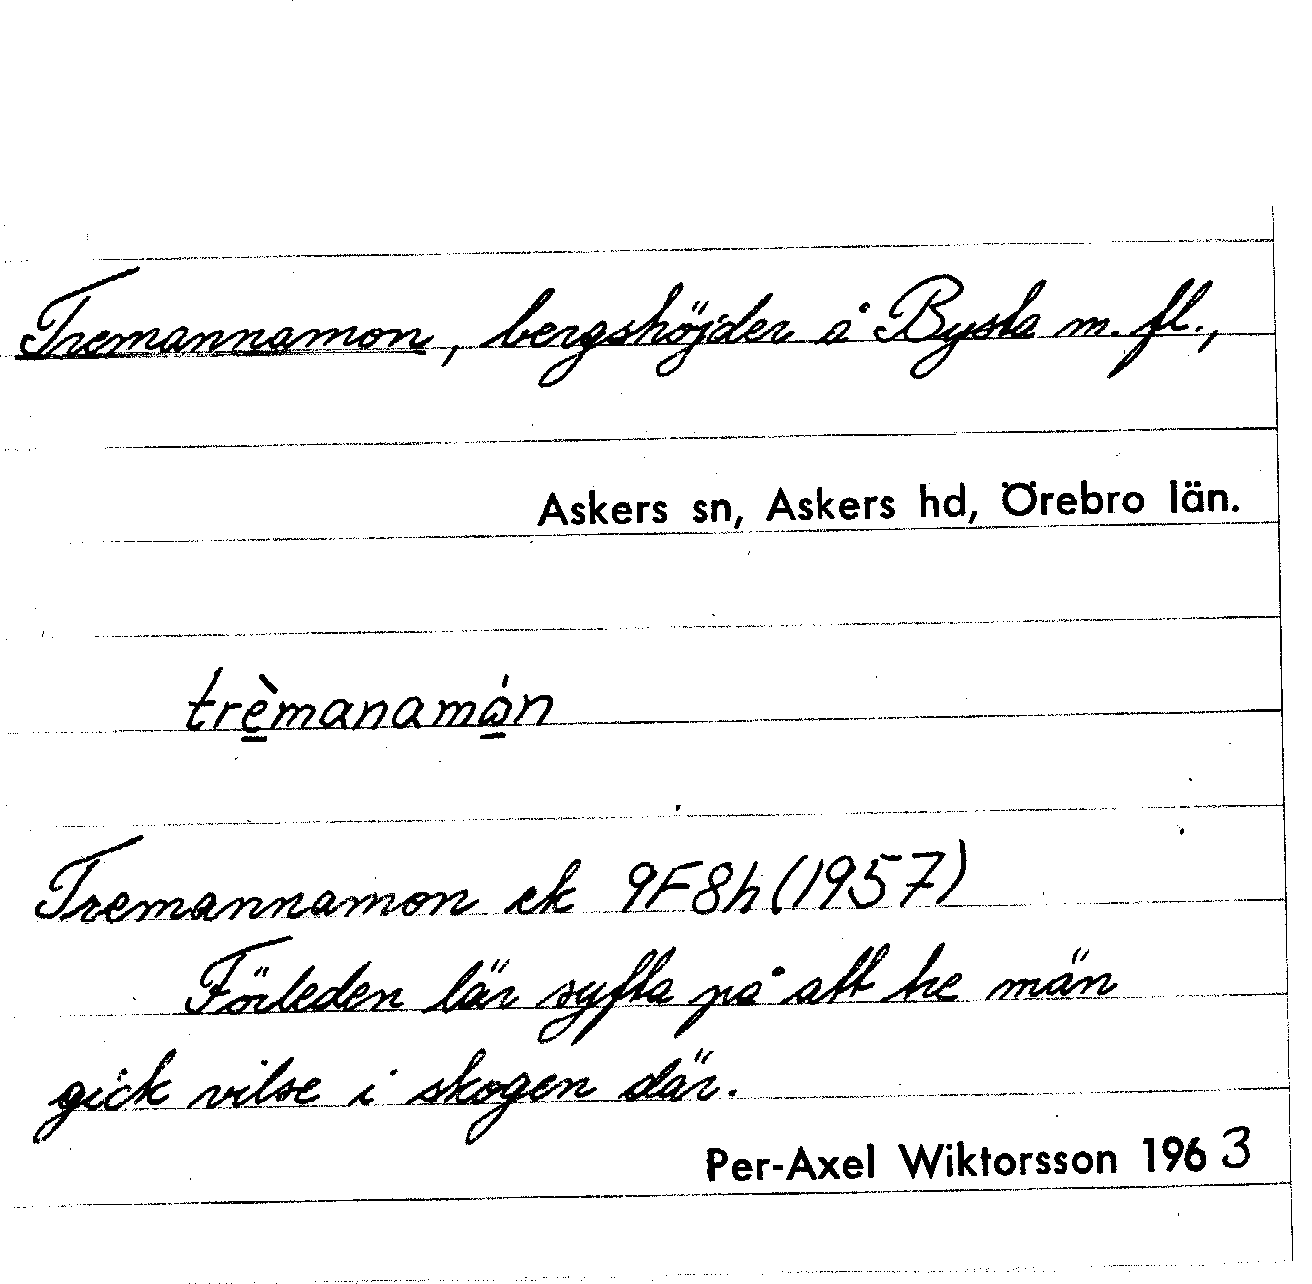 Tremannamon, bergshöjder å Bysta m. fl.,
Askers sn, Askers hd, Örebro län.
trèmanamȯ́n
Tremannamon ek 9F8h (1957)
Förleden lär syfta på att tre män
gick vilse i skogen där.
Per-Axel Wiktorsson 1963